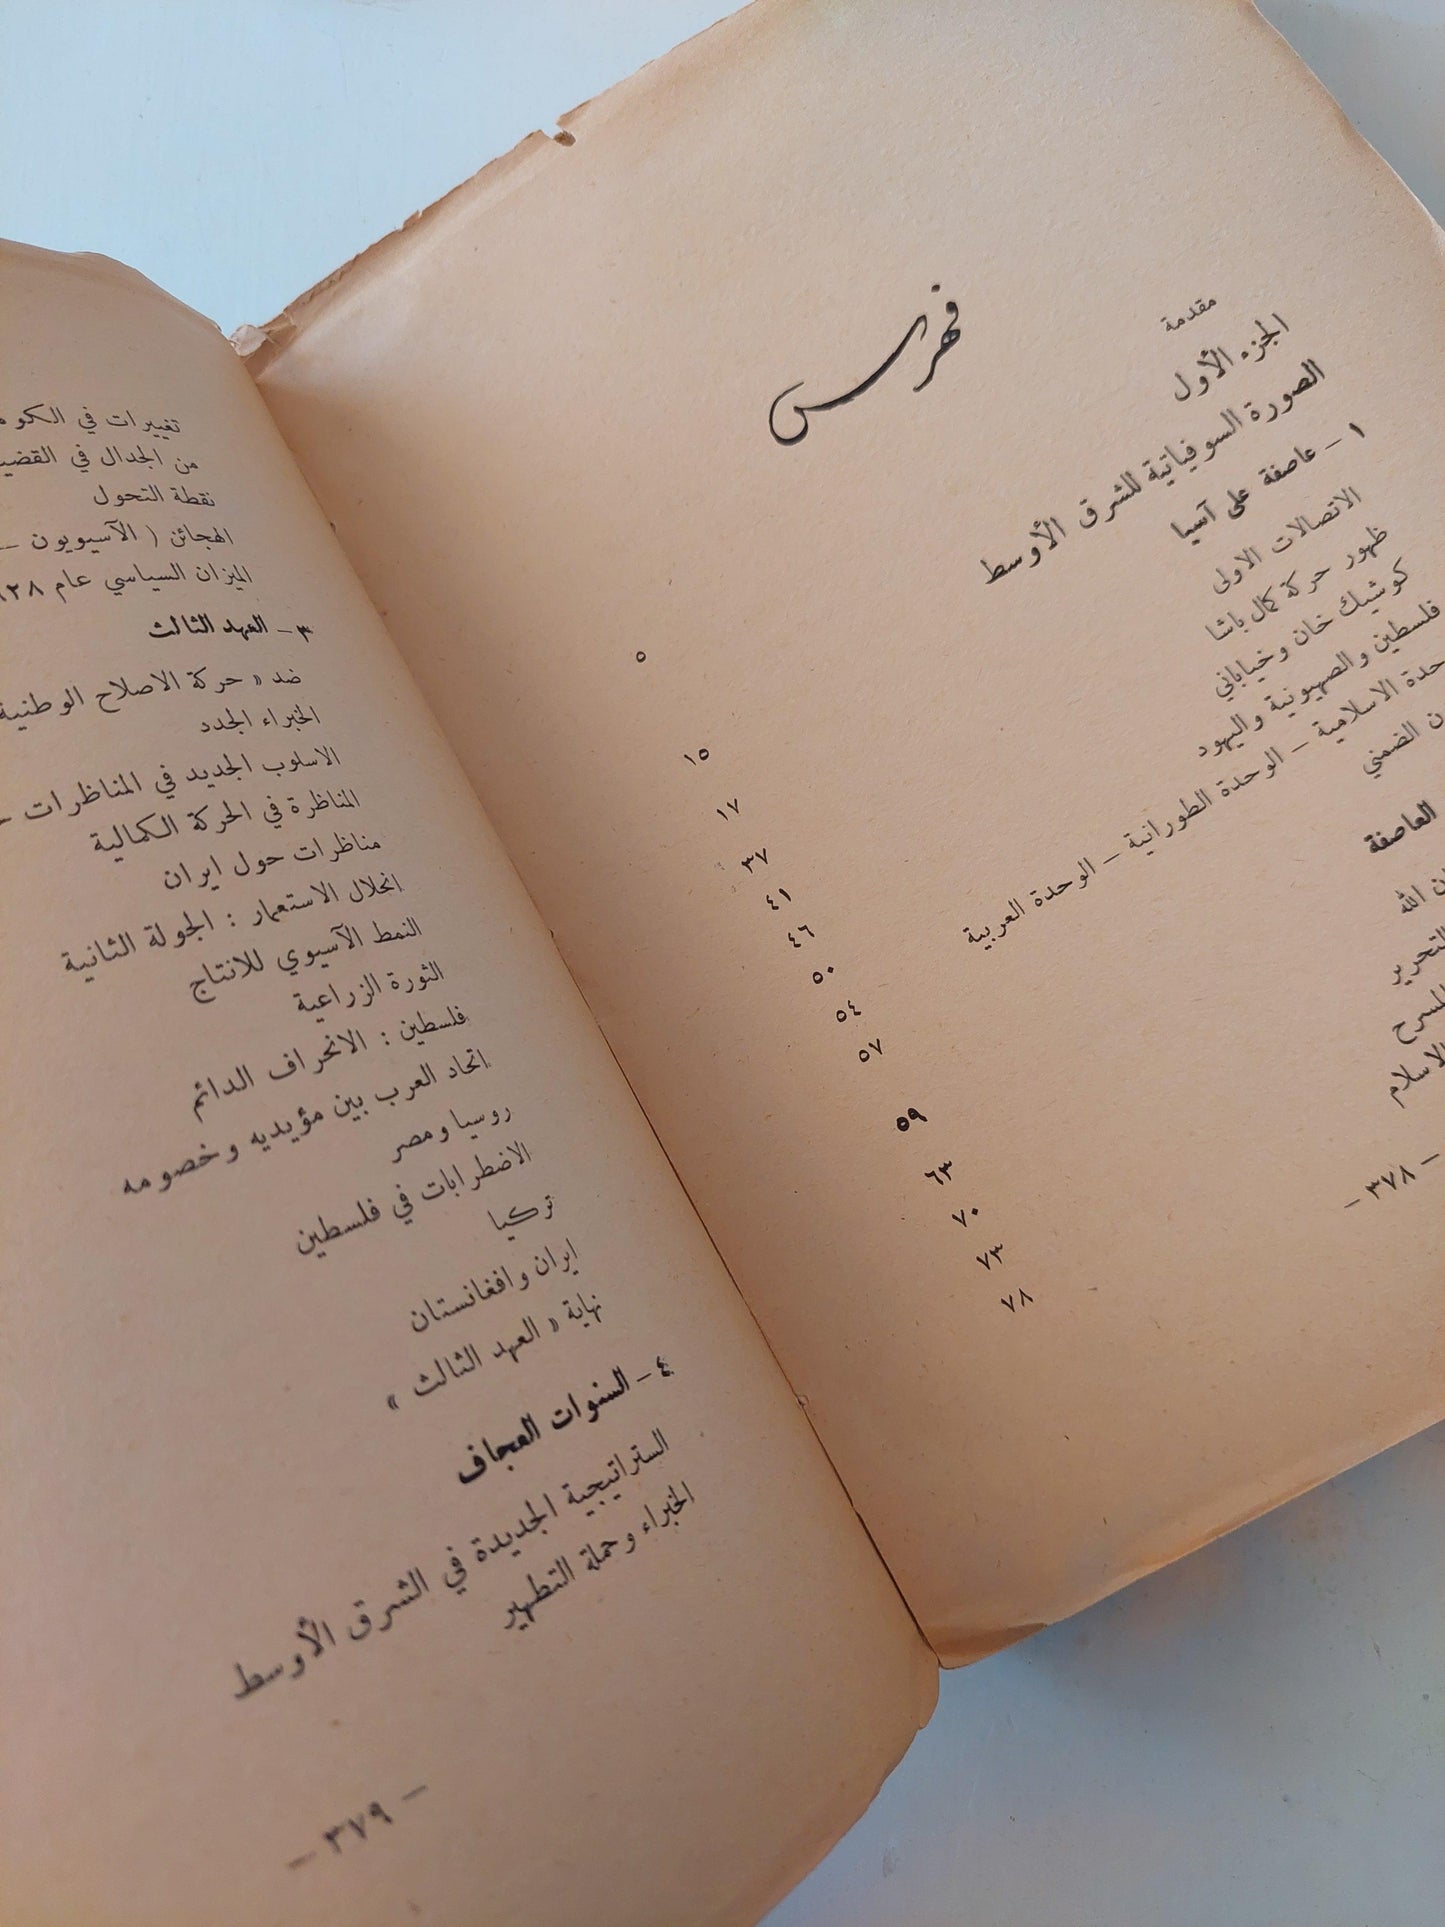 فهرس
مقدمة
٥
الجزء الأول
الصورة السوفياتية للشرق الأوسط
١٥
١ – عاصفة على آسيا
١٧
الاتصالات الاولى
٣٧
ظهور حركة كمال باشا
٤١
كوشيك خان وخياباني
٤٦
فلسطين والصهيونية واليهود
٥٠
الاسلامية – الوحدة الطورانية – الوحدة العربية
٥٤
الضمني
٥٧
العاصفة
٥٩
الله
٦٣
التحرير
٧٠
المسرح
٧٣
الاسلام
٧٨
– ٣٧٨ –
تغييرات في
من الجدال في
نقطة التحول
الهجائن ( الآسيويون –
الميزان السياسي عام
٣ – العهد الثالث
ضد « حركة الاصلاح الوطنية
الخبراء الجدد
الاسلوب الجديد في المناظرات
المناظرة في الحركة الكمالية
مناظرات حول ايران
انحلال الاستعمار : الجولة الثانية
النمط الآسيوي للانتاج
الثورة الزراعية
فلسطين : الانحراف الدائم
اتحاد العرب بين مؤيديه وخصومه
روسيا ومصر
الاضطرابات في فلسطين
تركيا
ايران وافغانستان
نهاية « العهد الثالث »
٤ – السنوات العجاف
الستراتيجية الجديدة في الشرق الأوسط
الخبراء وحملة التطهير
– ٣٧٩ –